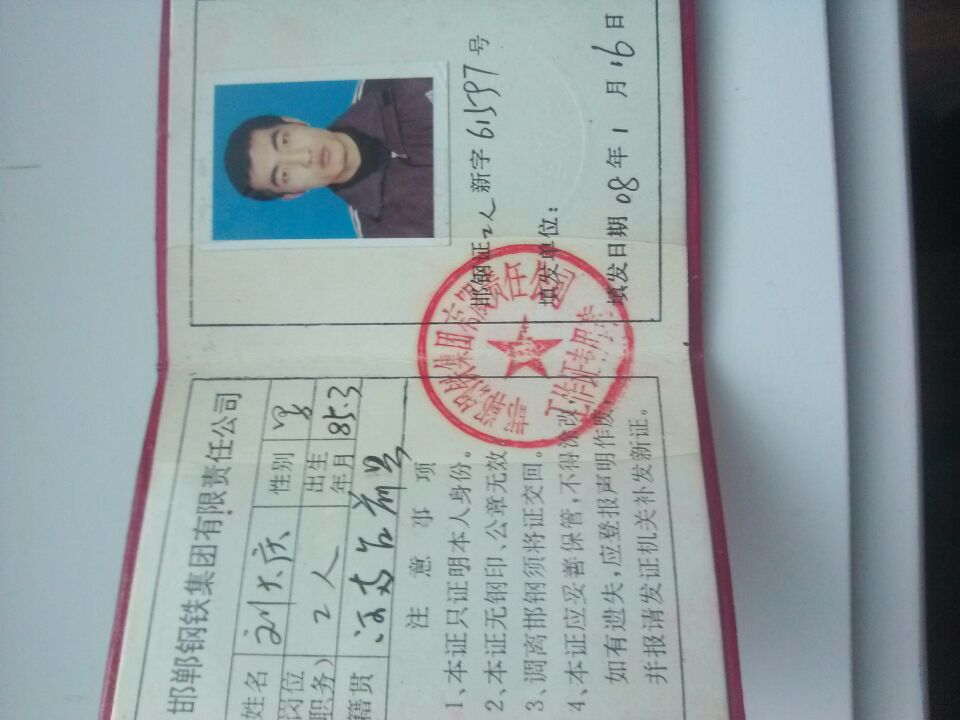 邯郸钢铁集团有限责任公司
姓名 刘大庆 性别 男
岗位(职务) 工人 出生年月 85.3
籍贯
注意事项
1、本证只证明本人身份。
2、本证无钢印、公章无效。
3、调离邯钢须将证交回。
4、本证应妥善保管,不得涂改,
如有遗失,应登报声明作废,
并报请发证机关补发新证。
邯钢证工人新字61597号
填发单位:
填发日期08年1月16日
工作证专用章